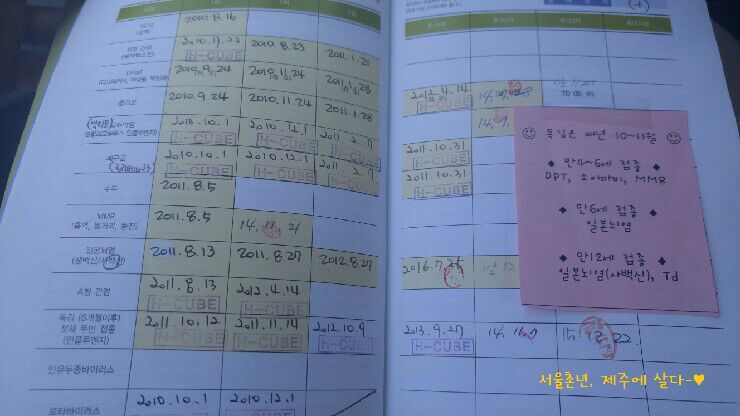 BCG 2010.8.16
2010.8.23 2011.1.21
H-CUBE
2010.9.24 2010.11.24 2011.1.28 2012.4.14
H-CUBE
폴리오 2010.9.24 2010.11.24 2011.1.28
2010.10.1 2010.12.1 2011.2.7 2011.10.31
H-CUBE H-CUBE H-CUBE H-CUBE
2010.10.1 2010.12.1 2011.2.7 2011.10.31
H-CUBE H-CUBE H-CUBE H-CUBE
수두 2011.8.5
MMR 2011.8.5 14.11.21
(홍역, 볼거리, 풍진)
일본뇌염 2011.8.13 2011.8.27 2012.8.27 2016.7.25
A형 간염 2011.8.13 2012.4.14
H-CUBE H-CUBE
독감 (6개월이후) 2011.10.12 2011.11.14 2012.10.9 2013.9.27
첫해 두번 접종 H-CUBE H-CUBE H-CUBE H-CUBE
(인플루엔자)
인유두종바이러스
로타바이러스 2010.10.1 2010.12.1
독감은 매년 -10~11월
만4~6세 접종
DPT, 소아마비, MMR
만6세 접종
일본뇌염
만12세 접종
일본뇌염(사백신), Td
서울촌년, 제주에 살다-♥